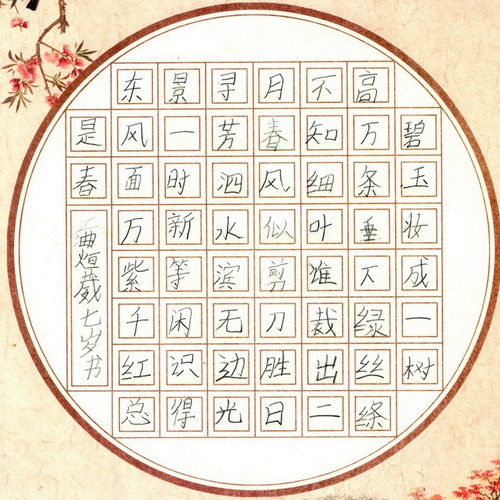 碧玉妆成一树
高万条垂下绿丝绦
不知细叶谁裁出二
月春风似剪刀胜日
寻芳泗水滨无边光
景一时新等闲识得
东风面万紫千红总
是春
七岁书